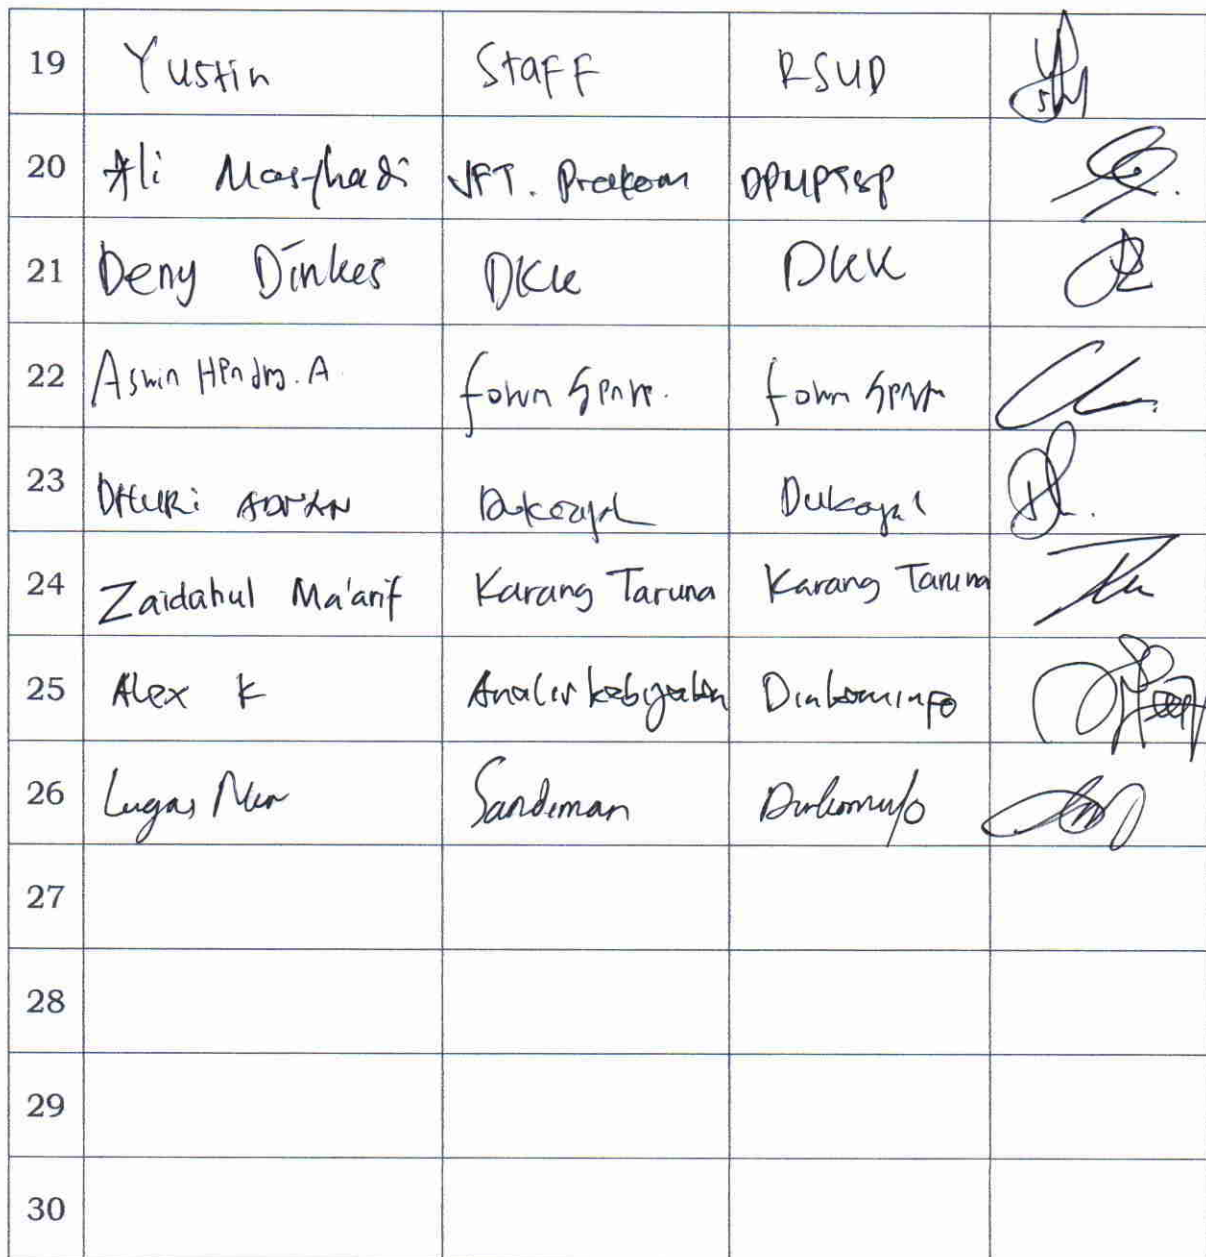 19 Yustin Staff RSUD
20 Ali Mas-hadi JFT. Prakom DPMPTSP
21 Deny Dinkes DKK DKK
22 Aswin Hendra. A form Genre. form Genre
23 Dukcapil Dukcapil
24 Zaidahul Ma'arif Karang Taruna Karang Taruna
25 Alex K Analis kebijakan Dinkominfo
26 Lugas Nur Sandiman Dinkominfo
27
28
29
30